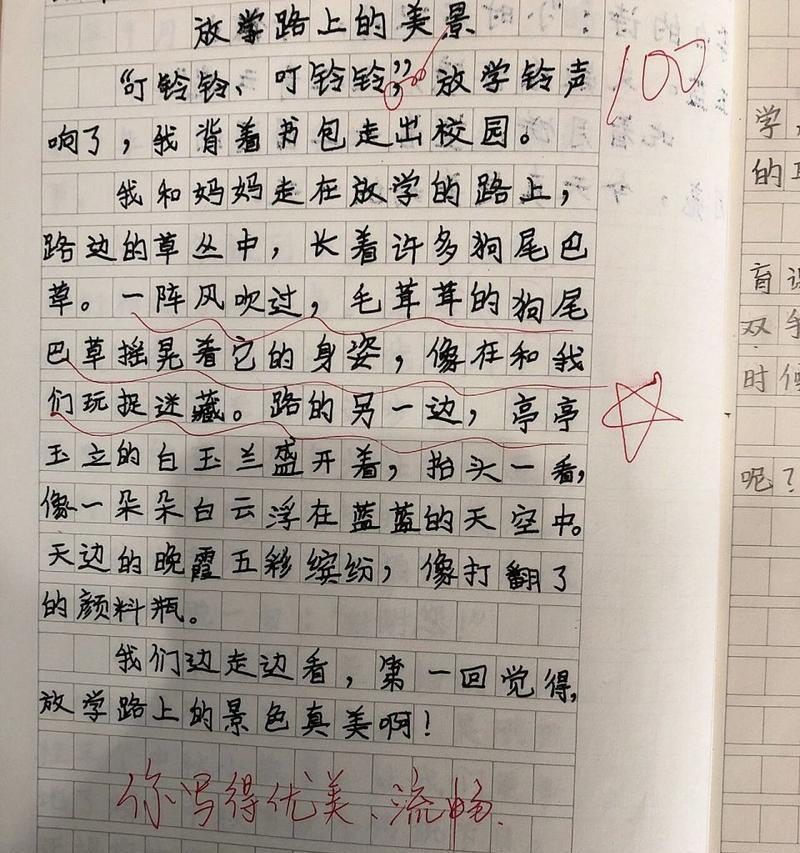 放学路上的美景
“叮铃铃、叮铃铃”，放学铃声
100
响了，我背着书包走出校园。
我和妈妈走在放学的路上，
路边的草丛中，长着许多狗尾巴
草。一阵风吹过，毛茸茸的狗尾
巴草摇晃着它的身姿，像在和我
们玩捉迷藏。路的另一边，亭亭
玉立的白玉兰盛开着，抬头一看，
像一朵朵白云浮在蓝蓝的天空中。
天边的晚霞五彩缤纷，像打翻了
的颜料瓶。
我们边走边看，第一回觉得，
放学路上的景色真美啊！
你写得优美、流畅.
学
的
育
双手
时候
呢？